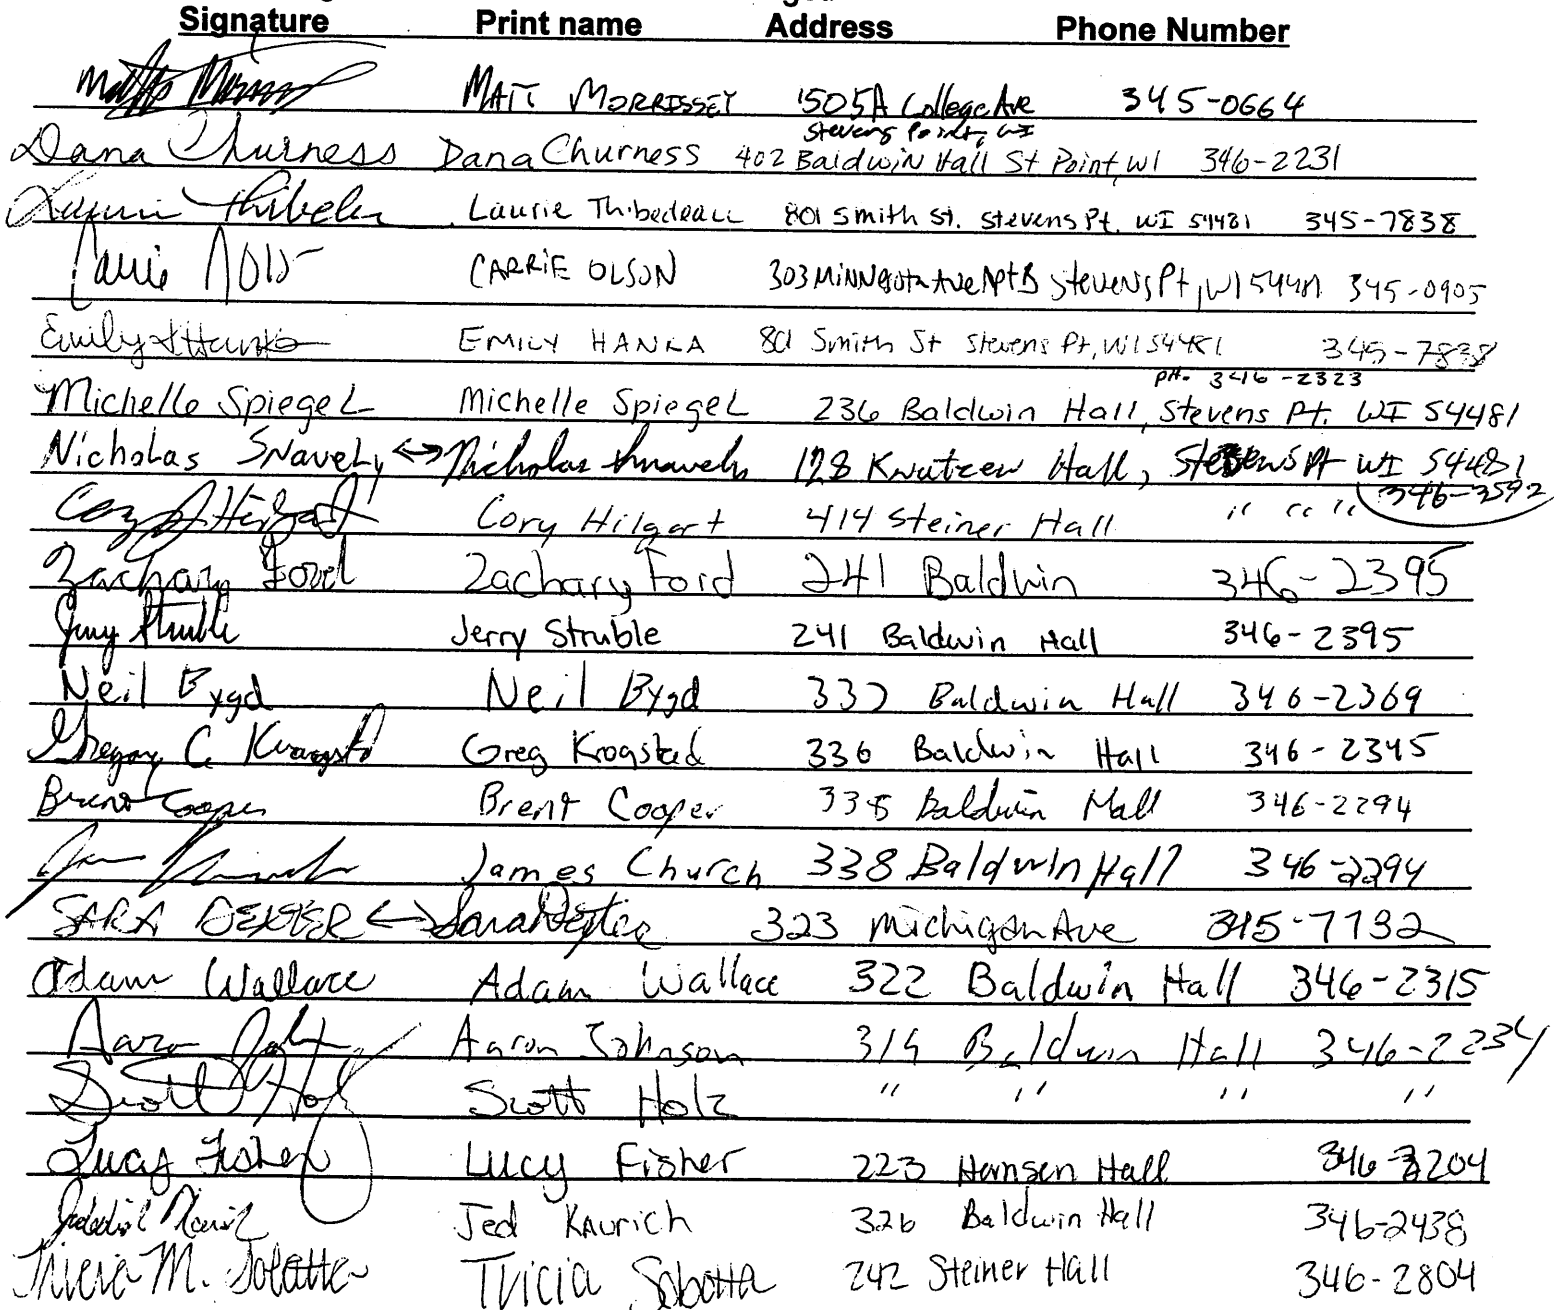 Signature Print name Address Phone Number
MATT MORRISSEY 1505A College Ave 345-0664
Stevens Point, WI
Dana Churness Dana Churness 402 Baldwin Hall St Point, WI 346-2231
Laurie Thibedeau 801 Smith St. Stevens Pt. WI 54481 345-7838
CARRIE OLSON 303 Minnesota Ave Apt B Stevens Pt, WI 54481 345-0905
EMILY HANKA 801 Smith St Stevens Pt, WI 54481 345-7838
PH. 346-2323
Michelle Spiegel Michelle Spiegel 236 Baldwin Hall, Stevens Pt. WI 54481
Nicholas Snavely <-> Nicholas Snavely 128 Knutzen Hall, Stevens Pt WI 54481
346-3592
Cory Hilgart 414 Steiner Hall " " "
Zachary Ford Zachary Ford 241 Baldwin 346-2395
Jerry Struble Jerry Struble 241 Baldwin Hall 346-2395
Neil Bygd Neil Bygd 332 Baldwin Hall 346-2369
Gregory C Krogstad Greg Krogstad 336 Baldwin Hall 346-2345
Brent Cooper Brent Cooper 338 Baldwin Hall 346-2294
James Church 338 Baldwin Hall 346-2294
SARA DEXTER <-> Sara Dexter 323 Michigan Ave 345-7732
Adam Wallace Adam Wallace 322 Baldwin Hall 346-2315
Aaron Johnson 319 Baldwin Hall 346-2234
Scott Holz Scott Holz " " " "
Lucy Fisher Lucy Fisher 223 Hansen Hall 346-3204
Jed Kaurich 326 Baldwin Hall 346-2438
Tricia M. Sobotta Tricia Sobotta 242 Steiner Hall 346-2804